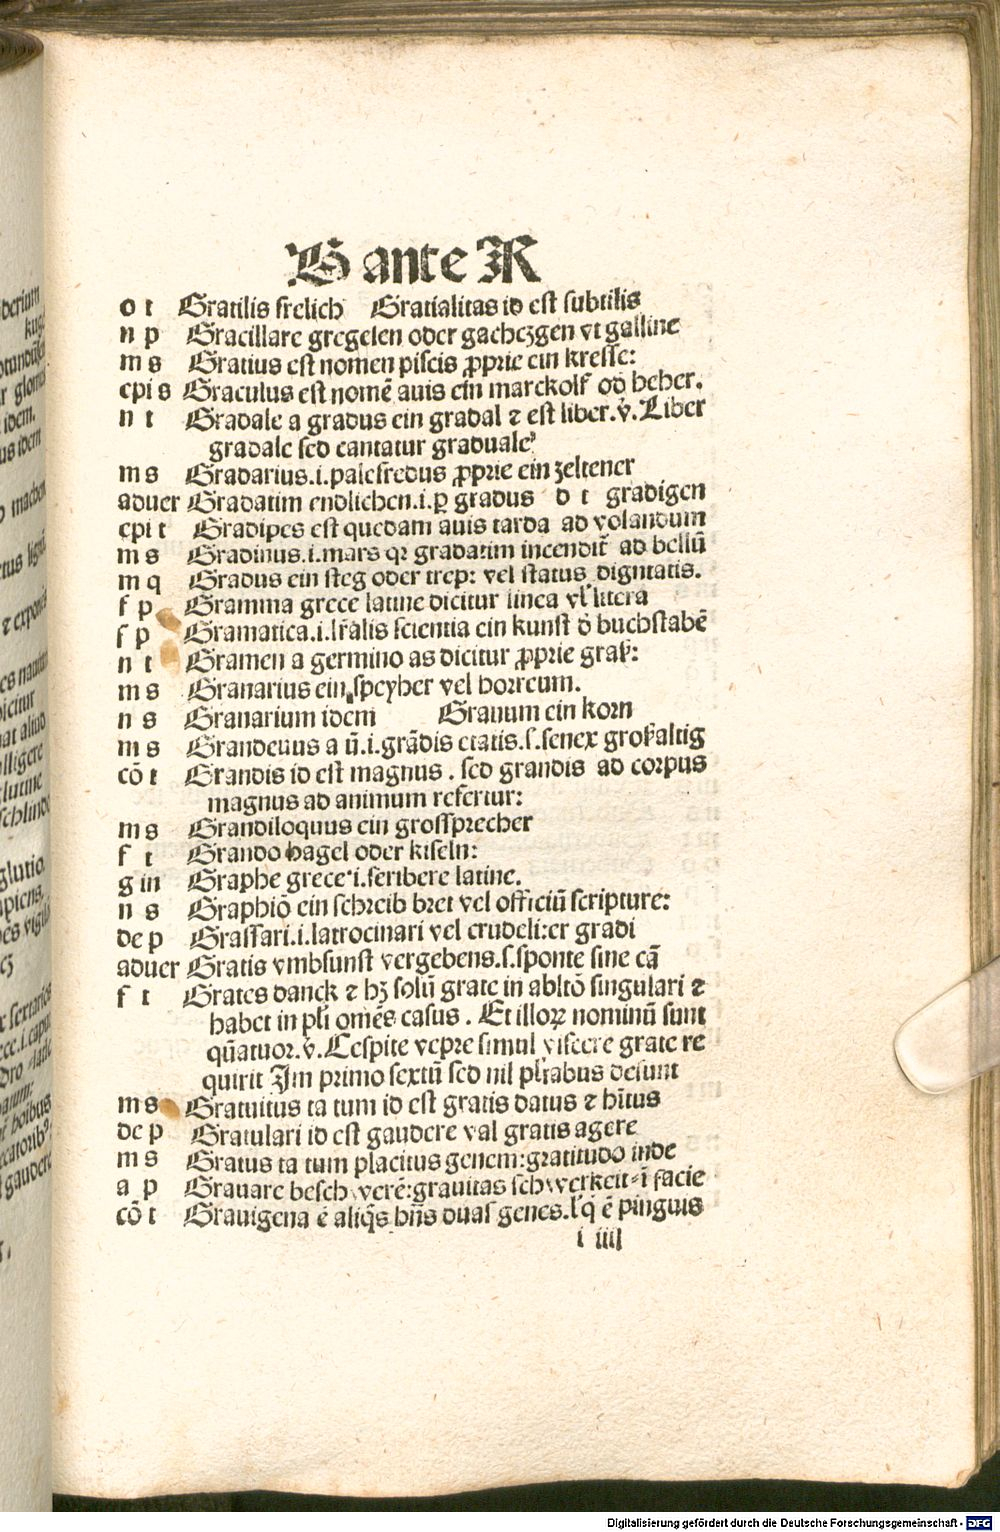 G ante R
o t Gratilis frelich Gratialitas id est subtilis
n p Gracillare gregelen oder gachczgen vt galline
m s Gratius est nomen piscis ꝓprie ein kresse:
epi s Graculus est nomē auis ein marckolf od̕ heher.
n t Gradale a gradus ein gradal ⁊ est liber.v̕. Liber
gradale sed cantatur graduale
m s Gradarius.i.palefredus ꝓprie ein zeltener
aduer Gradatim endlichen.i.ꝑ gradus d t gradigen
epi t Gradipes est quedam auis tarda ad volandum
m s Gradinus.i.mars qꝛ gradatim incendit̕ ad bellū
m q Gradus ein steg oder trep: vel status dignitatis.
f p Gramma grece latine dicitur linea vl̕ litera
f p Gramatica.i.lr̄alis scientia ein kunst d̕ buchstabē
n t Gramen a germino as dicitur ꝓprie graß:
m s Granarius ein speyher vel horreum.
n s Granarium idem Granum ein korn
m s Grandeuus a ū.i.grādis etatis.s.senex großaltig
cō t Grandis id est magnus . sed grandis ad corpus
magnus ad animum refertur:
m s Grandiloquus ein grossprecher
f t Grando hagel oder kiseln:
g in Graphe grece.i.scribere latine.
n s Graphiō ein schreib bret vel officiū scripture:
de p Grassari.i.latrocinari vel crudeli:er gradi
aduer Gratis vmbsunst vergebens.s.sponte sine cā
f t Grates danck ⁊ hꝫ solū grate in abltō singulari ⁊
habet in pli omēs casus . Et illoꝝ nominū sunt
qūatuor.v̕. Cespite vepre simul viscere grate re
quirit Im primo sextū sed nil plr̄abus desunt
m s Gratuitus ta tum id est gratis datus ⁊ hītus
de p Gratulari id est gaudere val gratis agere
m s Gratus ta tum placitus genem:gratitudo inde
a p Grauare beschwerē:grauitas schwerkeit ī facie
cō t Grauigena ē aliq̄s hn̄s duas genes.l̕ q̇ ē pinguis
i iiii
Digitalisierung gefördert durch die Deutsche Forschungsgemeinschaft - DFG